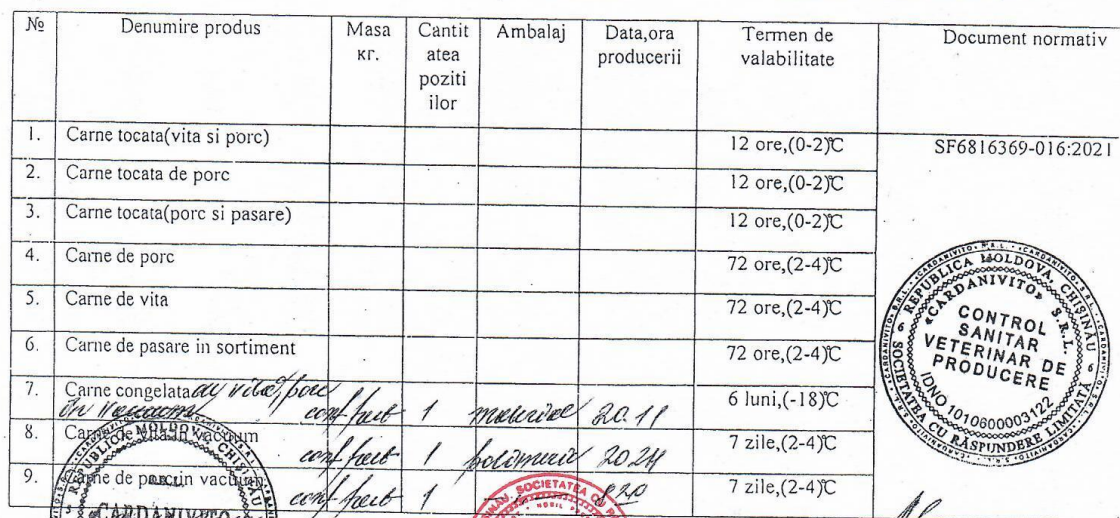 № Denumire produs Masa кг. Cantit atea poziti ilor Ambalaj Data,ora producerii Termen de valabilitate Document normativ
1. Carne tocata(vita si porc) 12 ore,(0-2)℃ SF6816369-016:2021
2. Carne tocata de porc 12 ore,(0-2)℃
3. Carne tocata(porc si pasare) 12 ore,(0-2)℃
4. Carne de porc 72 ore,(2-4)℃
5. Carne de vita 72 ore,(2-4)℃
6. Carne de pasare in sortiment 72 ore,(2-4)℃
7. Carne congelata 6 luni,(-18)℃
in vacuum conf fact 1 material 20.11
8. Carne de vita in vacuum conf fact 1 20 24 7 zile,(2-4)℃
9. Carne de porc in vacuum conf fact 1 8 20 7 zile,(2-4)℃
REPUBLICA MOLDOVA, CHIȘINĂU
SOCIETATEA CU RĂSPUNDERE LIMITATĂ
«CARDANIVITO» S.R.L.
CONTROL
SANITAR
VETERINAR DE
PRODUCERE
IDNO 1010600003122
REPUBLICA MOLDOVA, CHIȘINĂU
S.R.L.
CARDANIVITO
SOCIETATEA CU